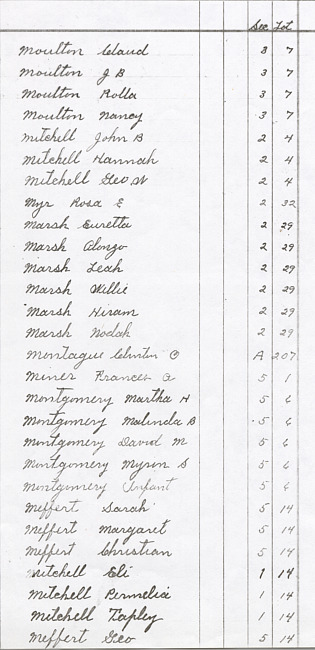 Sec Lot
Moulton Claud 3 7
Moulton J B 3 7
Moulton Rolla 3 7
Moulton Nancy 3 7
Mitchell John B 2 4
Mitchell Hannah 2 4
Mitchell Geo W 2 4
Myr Rosa E 2 32
Marsh Euretta 2 29
Marsh Alonzo 2 29
Marsh Leah 2 29
Marsh Willie 2 29
Marsh Hiram 2 29
Marsh Nodah 2 29
Montague Clinton O A 207
Miner Frances A 5 1
Montgomery Martha H 5 6
Montgomery Malinda B 5 6
Montgomery David M 5 6
Montgomery Myron S 5 6
Montgomery Infant 5 6
Meffert Sarah 5 14
Meffert Margaret 5 14
Meffert Christian 5 14
Mitchell Eli 1 14
Mitchell Permelia 1 14
Mitchell Tapley 1 14
Meffert Geo 5 14